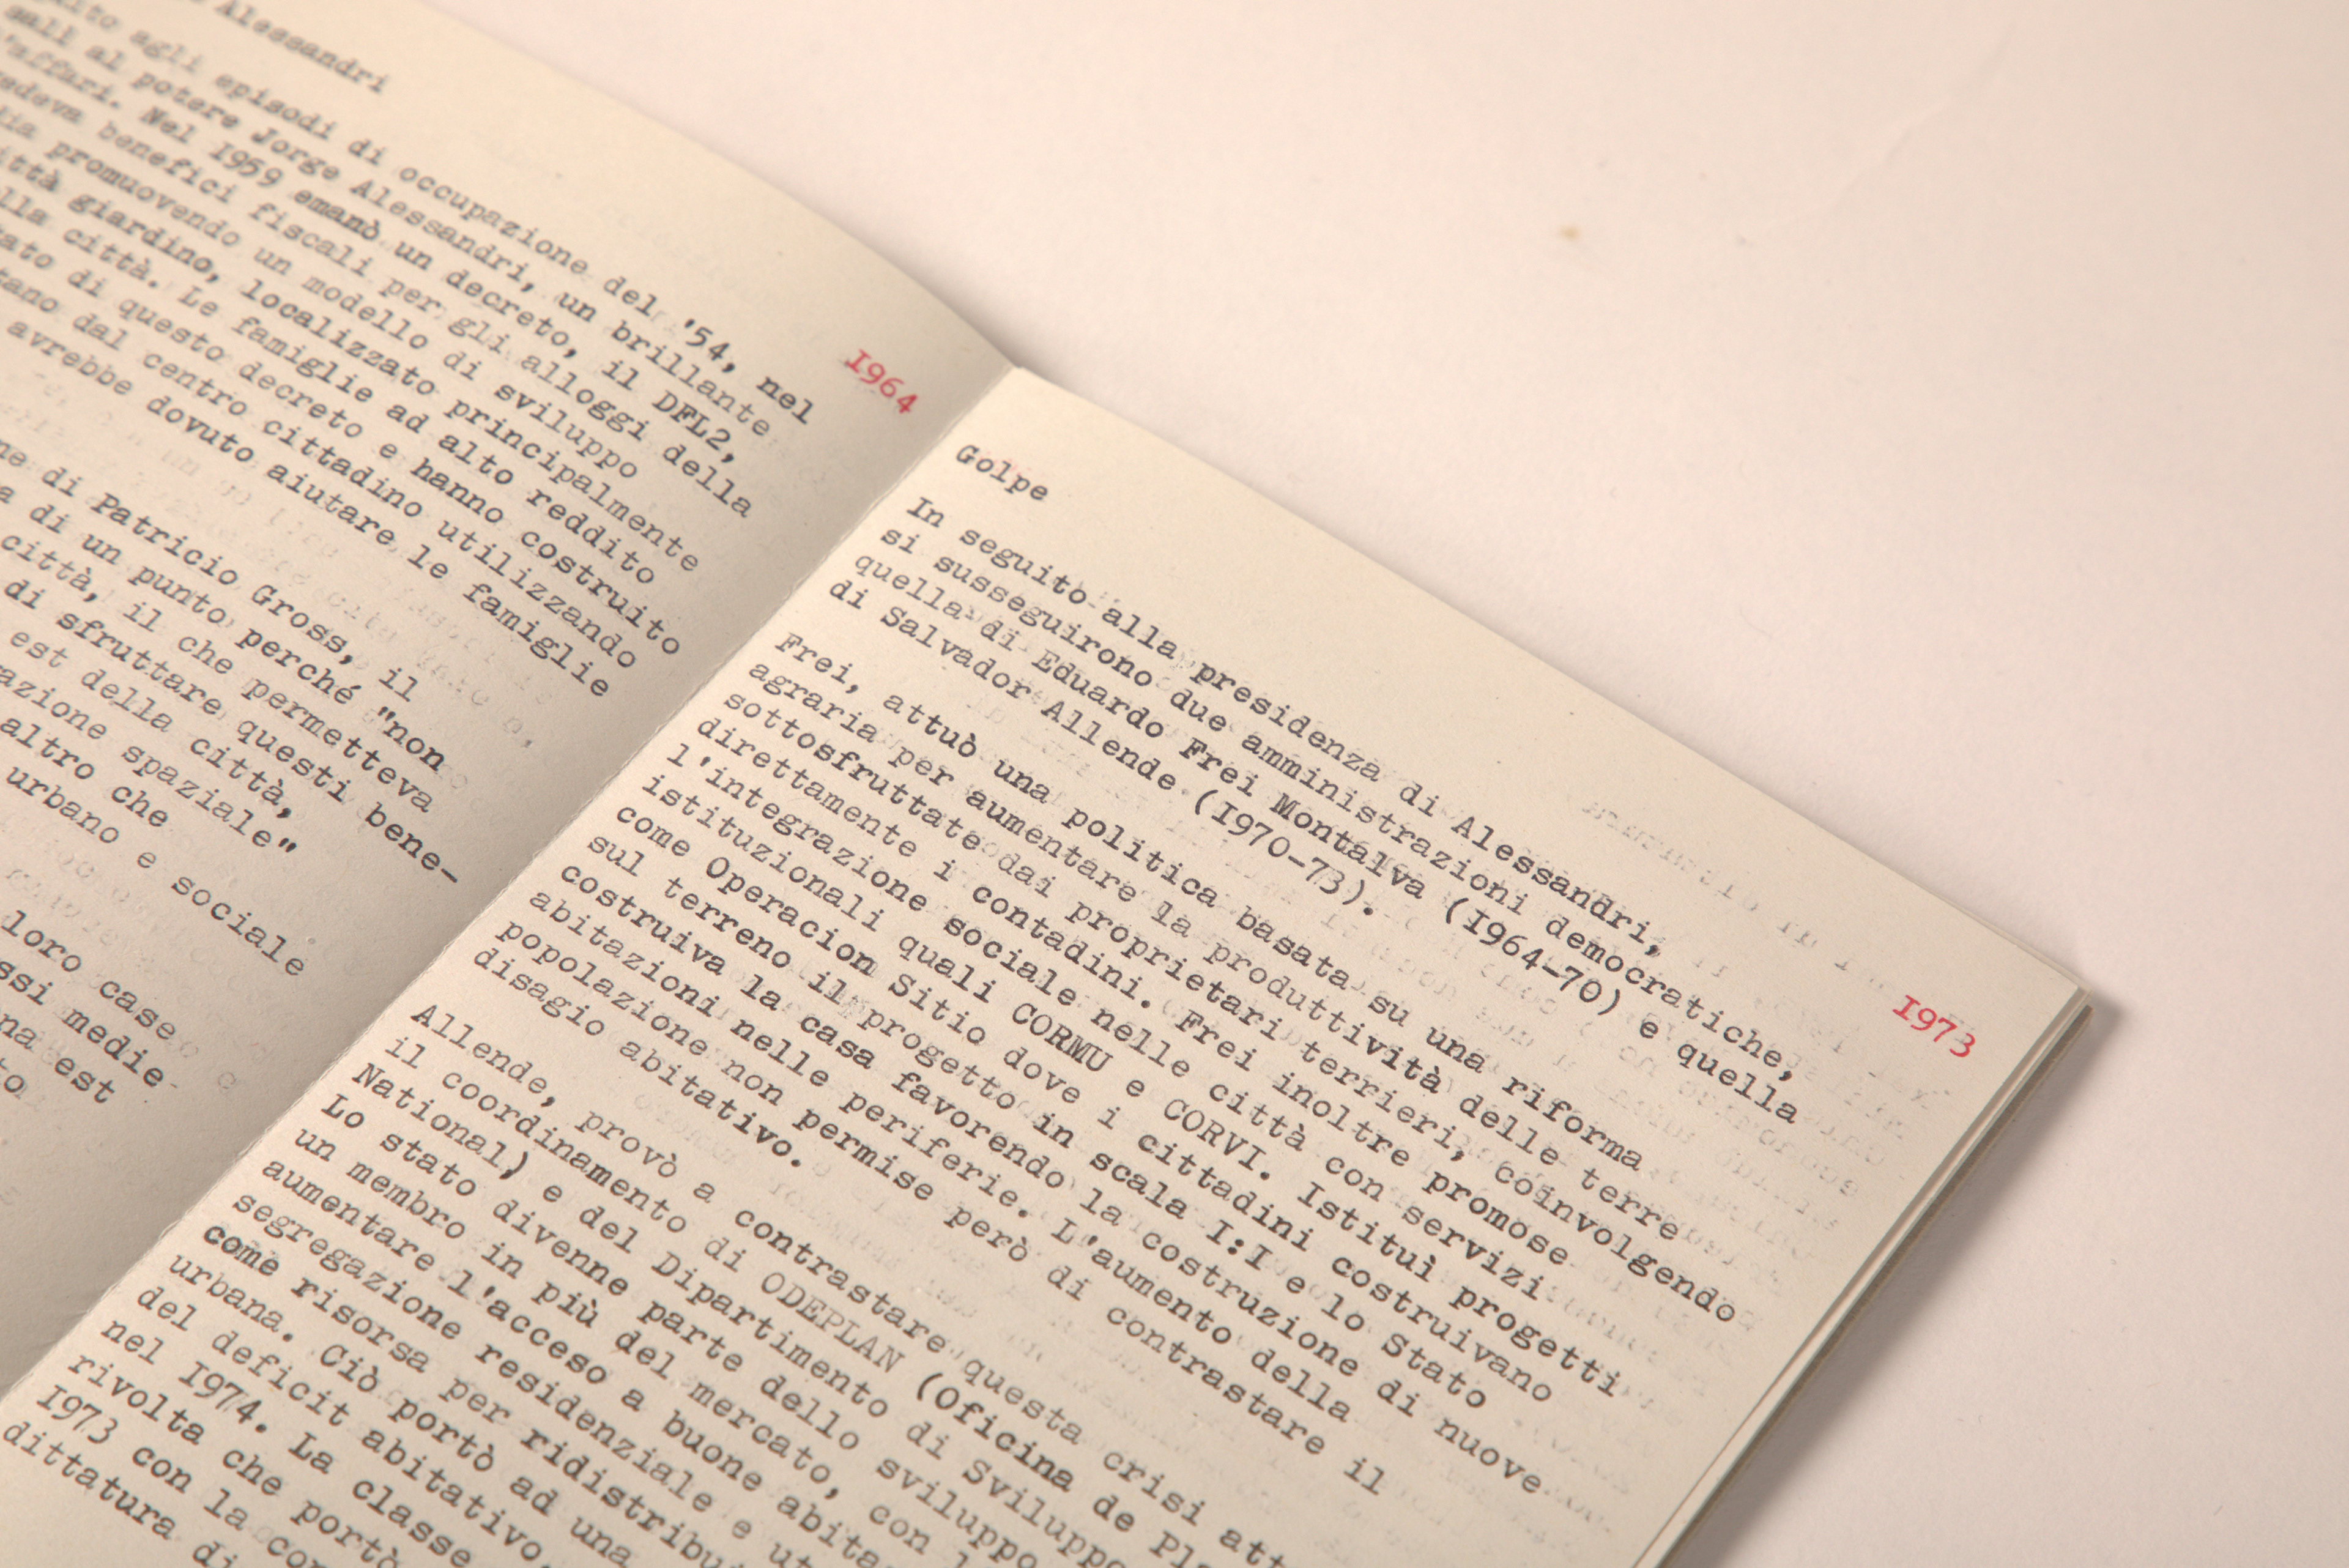 Alessandri
agli episodi di occupazione del '54, nel
salì al potere Jorge Alessandri, un brillante
d'affari. Nel I959 emanò un decreto, il DFL2,
benefici fiscali per gli alloggi della
promuovendo un modello di sviluppo
città giardino, localizzato principalmente
città. Le famiglie ad alto reddito
di questo decreto e hanno costruito
dal centro cittadino utilizzando
avrebbe dovuto aiutare le famiglie
di Patricio Gross, il
di un punto perché "non
città, il che permetteva
di sfruttare questi bene-
est della città,
spaziale"
altro che
urbano e sociale
loro case
medie-
est
I964
Golpe
In seguito alla presidenza di Alessandri,
si susseguirono due amministrazioni democratiche,
quella di Eduardo Frei Montalva (I964-70) e quella
di Salvador Allende (I970-73).
Frei, attuò una politica basata su una riforma
agraria per aumentare la produttività delle terre
sottosfruttate dai proprietari terrieri, coinvolgendo
direttamente i contadini. Frei inoltre promose
l'integrazione sociale nelle città con servizi
istituzionali quali CORMU e CORVI. Istituì progetti
come Operacion Sitio dove i cittadini costruivano
sul terreno il progetto in scala I:I e lo Stato
costruiva la casa favorendo la costruzione di nuove
abitazioni nelle periferie. L'aumento della
popolazione non permise però di contrastare il
disagio abitativo.
Allende, provò a contrastare questa crisi
il coordinamento di ODEPLAN (Oficina de
National) e del Dipartimento di Sviluppo
Lo stato divenne parte dello sviluppo
un membro in più del mercato, con
aumentare l'acceso a buone
segregazione residenziale e
come risorsa per
urbana. Ciò portò ad una
del deficit abitativo,
nel I974. La classe
rivolta che portò
I973 con la
dittatura di
I973